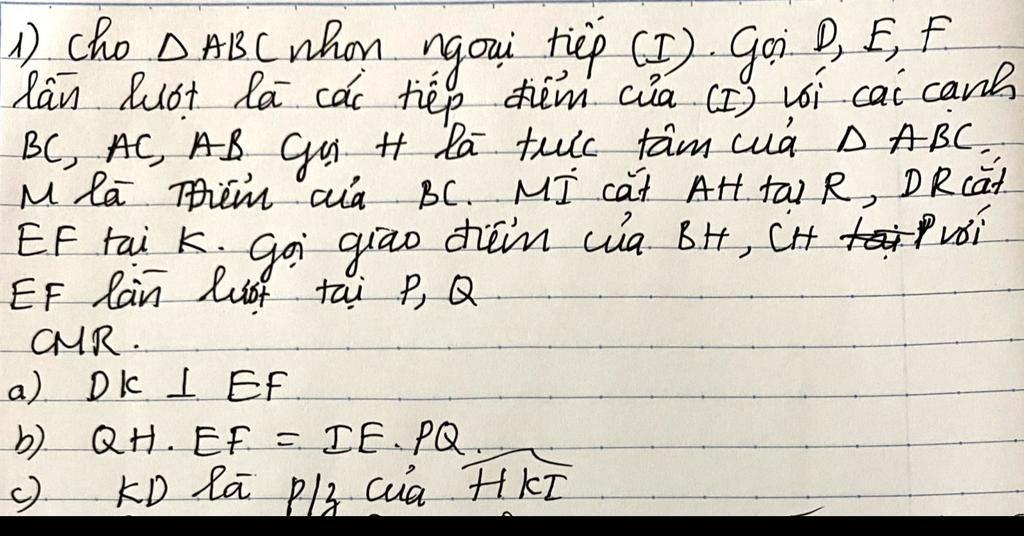 1) Cho △ ABC nhọn ngoại tiếp (I). Gọi D, E, F
lần lượt là các tiếp điểm của (I) với các cạnh
BC, AC, AB Gọi H là trực tâm của △ ABC.
M là TĐiểm của BC. MI cắt AH tại R, DR cắt
EF tại K. Gọi giao điểm của BH, CH với
EF lần lượt tại P, Q
CMR.
a) DK ⊥ EF
b) QH. EF = IE. PQ.
c) KD là p/g của HKI